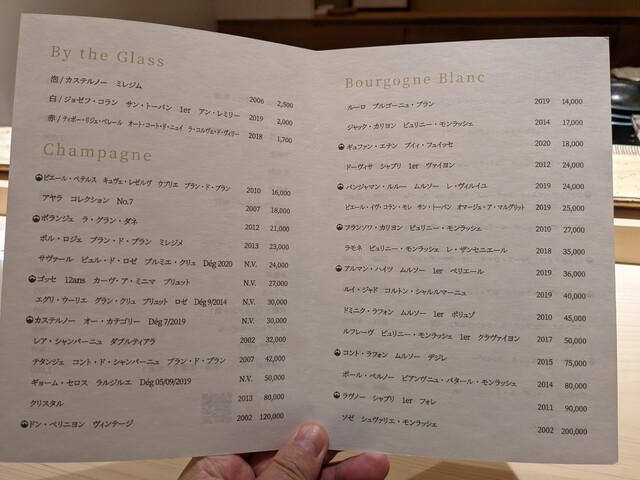 By the Glass
泡/カステルノー　ミレジム　2006　2,500
白/ジョゼフ・コラン　サン・トーバン　1er　アン・レミリー　2019　2,000
赤/ティボー・リジェ・ベレール　オート・コート・ド・ニュイ　ラ・コルヴェ・ド・ヴィリー　2018　1,700
Champagne
ピエール・ペテルス　キュヴェ・レゼルヴ　ウブリエ　ブラン・ド・ブラン　2010　16,000
アヤラ　コレクション　No.7　2007　18,000
ボランジェ　ラ・グラン・ダネ　2012　21,000
ポル・ロジェ　ブラン・ド・ブラン　ミレジメ　2013　23,000
サヴァール　ビュル・ド・ロゼ　プルミエ・クリュ　Dég 2020　N.V.　24,000
ゴッセ　12ans　カーヴ・ア・ミニマ　ブリュット　N.V.　27,000
エグリ・ウーリエ　グラン・クリュ　ブリュット　ロゼ　Dég 9/2014　N.V.　30,000
カステルノー　オー・カテゴリー　Dég 7/2019　N.V.　30,000
レア・シャンパーニュ　ダブルティアラ　2002　32,000
テタンジェ　コント・ド・シャンパーニュ　ブラン・ド・ブラン　2007　42,000
ギョーム・セロス　ラルジルエ　Dég 05/09/2019　N.V.　50,000
クリスタル　2013　80,000
ドン・ペリニヨン　ヴィンテージ　2002　120,000
Bourgogne Blanc
ルーロ　ブルゴーニュ・ブラン　2019　14,000
ジャック・カリヨン　ピュリニー・モンラッシェ　2014　17,000
ギュファン・エナン　プイィ・フュイッセ　2020　18,000
ドーヴィサ　シャブリ　1er　ヴァイヨン　2012　24,000
バンジャマン・ルルー　ムルソー　レ・ヴィルイユ　2019　24,000
ピエール・イヴ・コラン・モレ　サン・トーバン　オマージュ・ア・マルグリット　2019　25,000
フランソワ・カリヨン　ピュリニー・モンラッシェ　2010　27,000
ラモネ　ピュリニー・モンラッシェ　レ・ザンセニエール　2018　35,000
アルマン・ハイツ　ムルソー　1er　ペリエール　2019　36,000
ルイ・ジャド　コルトン・シャルルマーニュ　2019　40,000
ドミニク・ラフォン　ムルソー　1er　ポリュゾ　2010　45,000
ルフレーヴ　ピュリニー・モンラッシェ　1er　クラヴァイヨン　2017　50,000
コント・ラフォン　ムルソー　デジレ　2015　75,000
ポール・ペルノー　ビアンヴニュ・バタール・モンラッシェ　2014　80,000
ラヴノー　シャブリ　1er　フォレ　2011　90,000
ソゼ　シュヴァリエ・モンラッシェ　2002　200,000